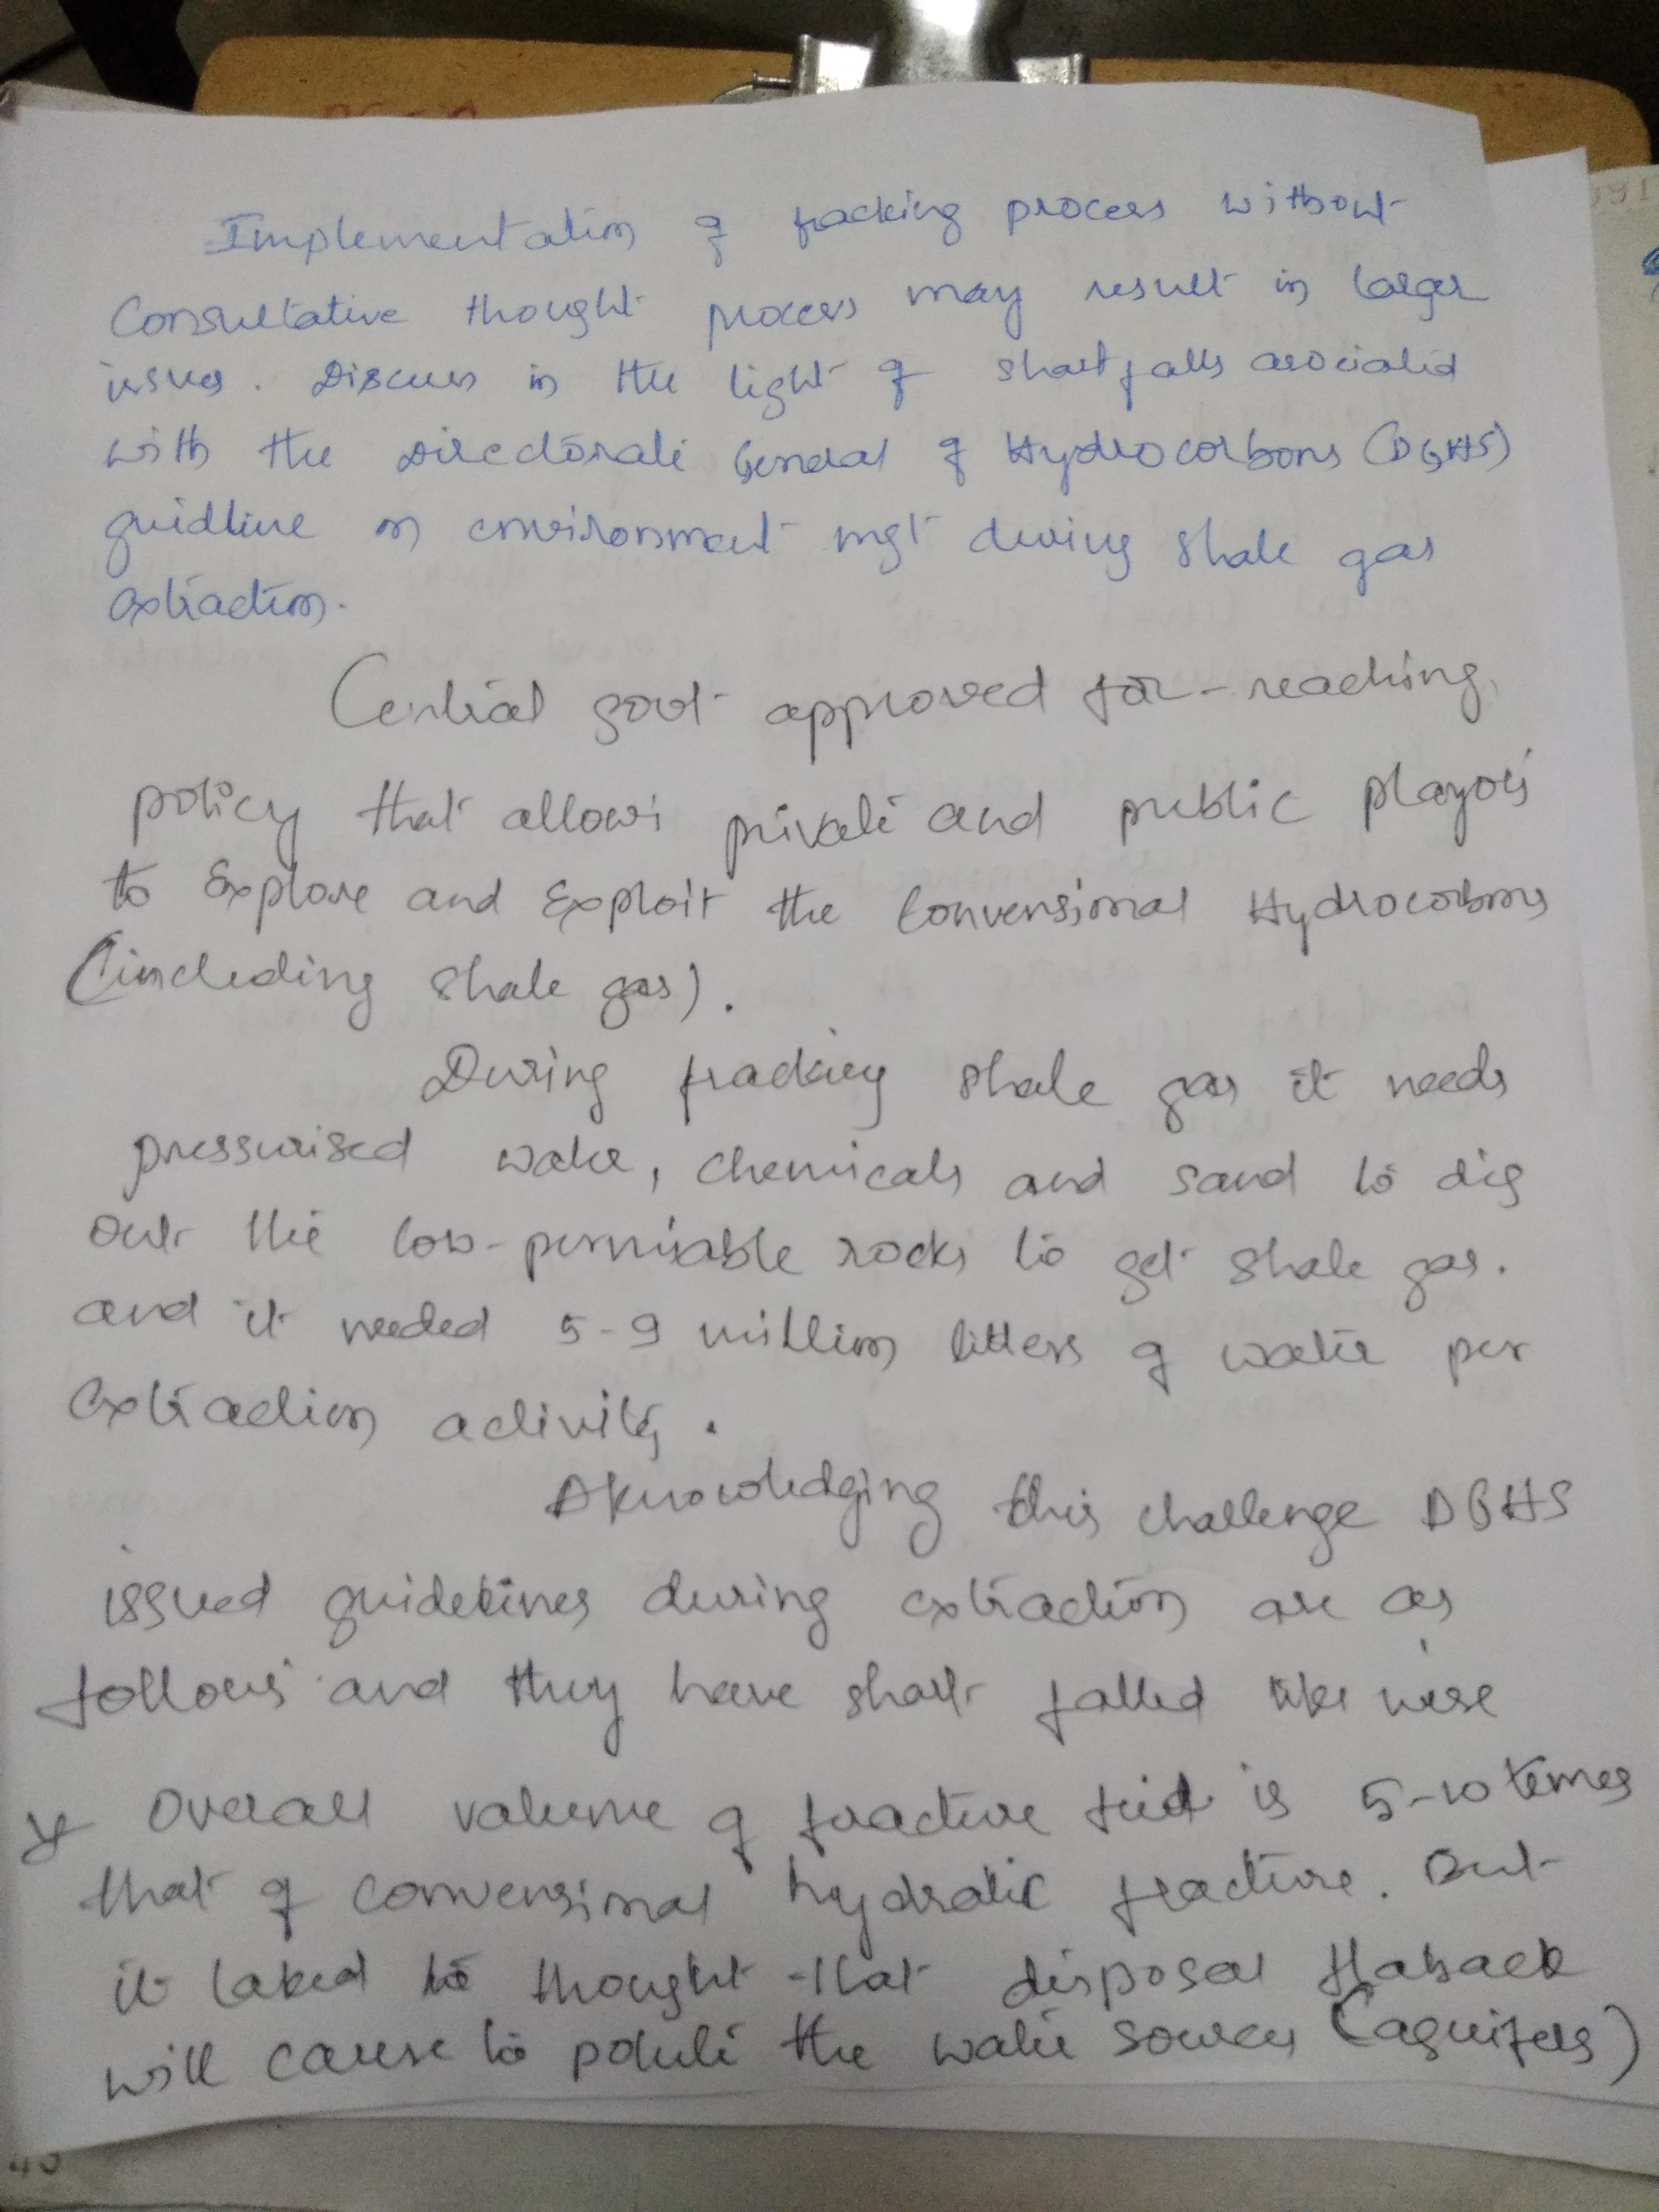 Implementation of fracking process without
Consultative thought process may result in larger
issues. Discuss in the light of shortfalls associated
with the Directorate General of Hydrocorbons (DGHS)
guidline on environment mgt during shale gas
extraction.
Central govt approved far-reaching
policy that allows private and public players
to Explore and Exploit the Convensional Hydrocorbons
(including shale gas).
During fracking shale gas it needs
pressurised water, chemicals and sand to dig
out the low-permiable rocks to get shale gas.
and it needed 5-9 million litters of water per
extraction activity.
Aknowledging this challenge DGHS
issued guidelines during extraction are as
follows and they have short falled like wise
overall volume of fracture is 5-10 times
that of convensional hydralic fracture. But
it laked to thought that disposal flaback
will cause to polute the water sources (aquifers)